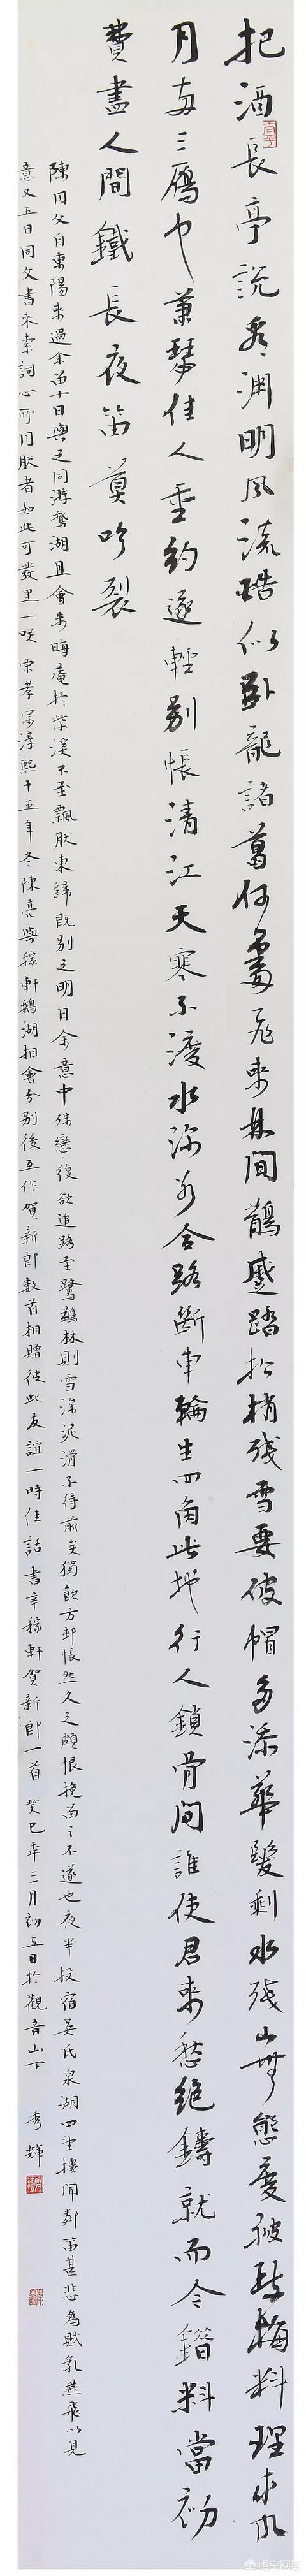 把酒長亭說看淵明風流酷似臥龍諸葛何處飛來林間鵲蹙踏松梢殘雪要破帽多添華髮剩水殘山無態度被疎梅料理成風
月兩三雁也蕭瑟佳人重約還輕別悵清江天寒不渡水深冰合路斷車輪生四角此地行人銷骨問誰使君來愁絕鑄就而今錯料當初
費盡人間鐵長夜笛莫吹裂
陳同父自東陽來過余留十日與之同游鵝湖且會朱晦庵於紫溪不至飄然東歸既別之明日余意中殊戀戀復欲追路至鷺鷀林則雪深泥滑不得前矣獨飲方邨悵然久之頗恨挽留之不遂也夜半投宿吳氏泉湖四望樓聞鄰笛甚悲為賦乳燕飛以見
意又五日同父書來索詞心所同然者如此可發里一咲 宋孝宗淳熙十五年冬陳亮與稼軒鵝湖相會分別後互作賀新郎數首相贈彼此友誼一時佳話 書辛稼軒賀新郎一首 癸巳年三月初五日於觀音山下 秀輝
悟空问答